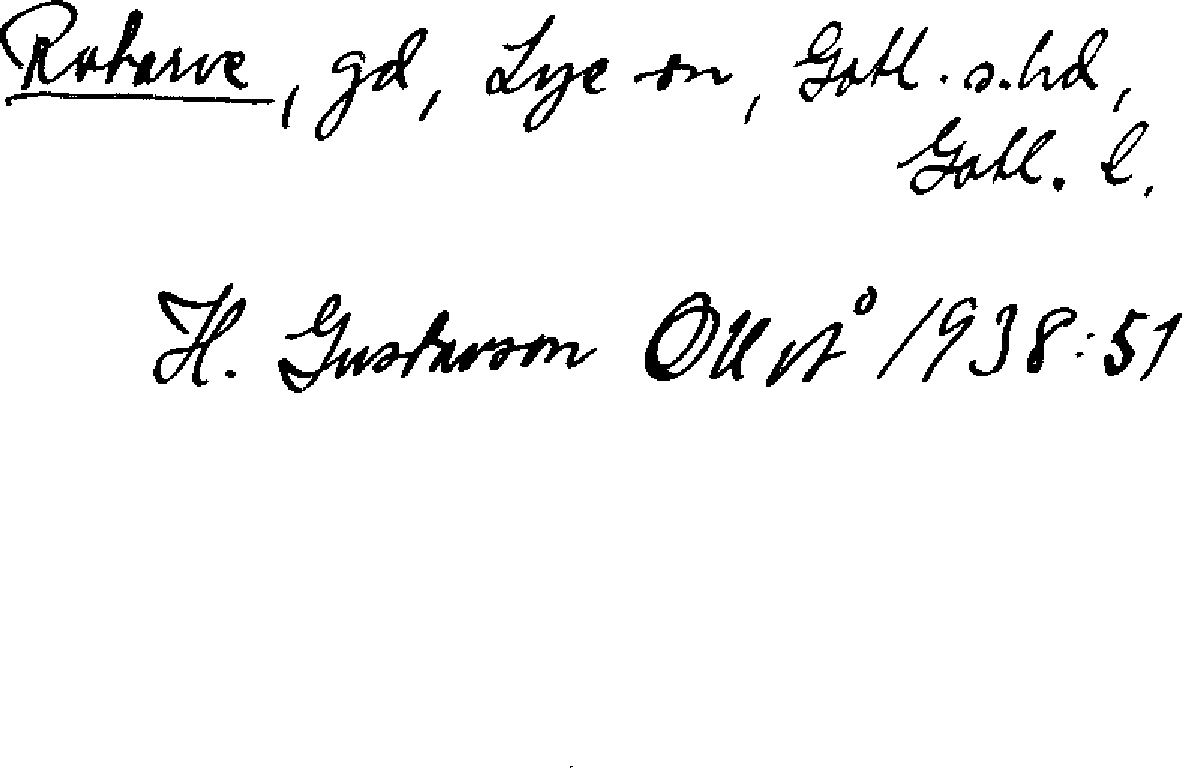 Robarve, gd, Lye sn, Gotl. s. hd,
Gotl. l.
H. Gustavson 1938:51